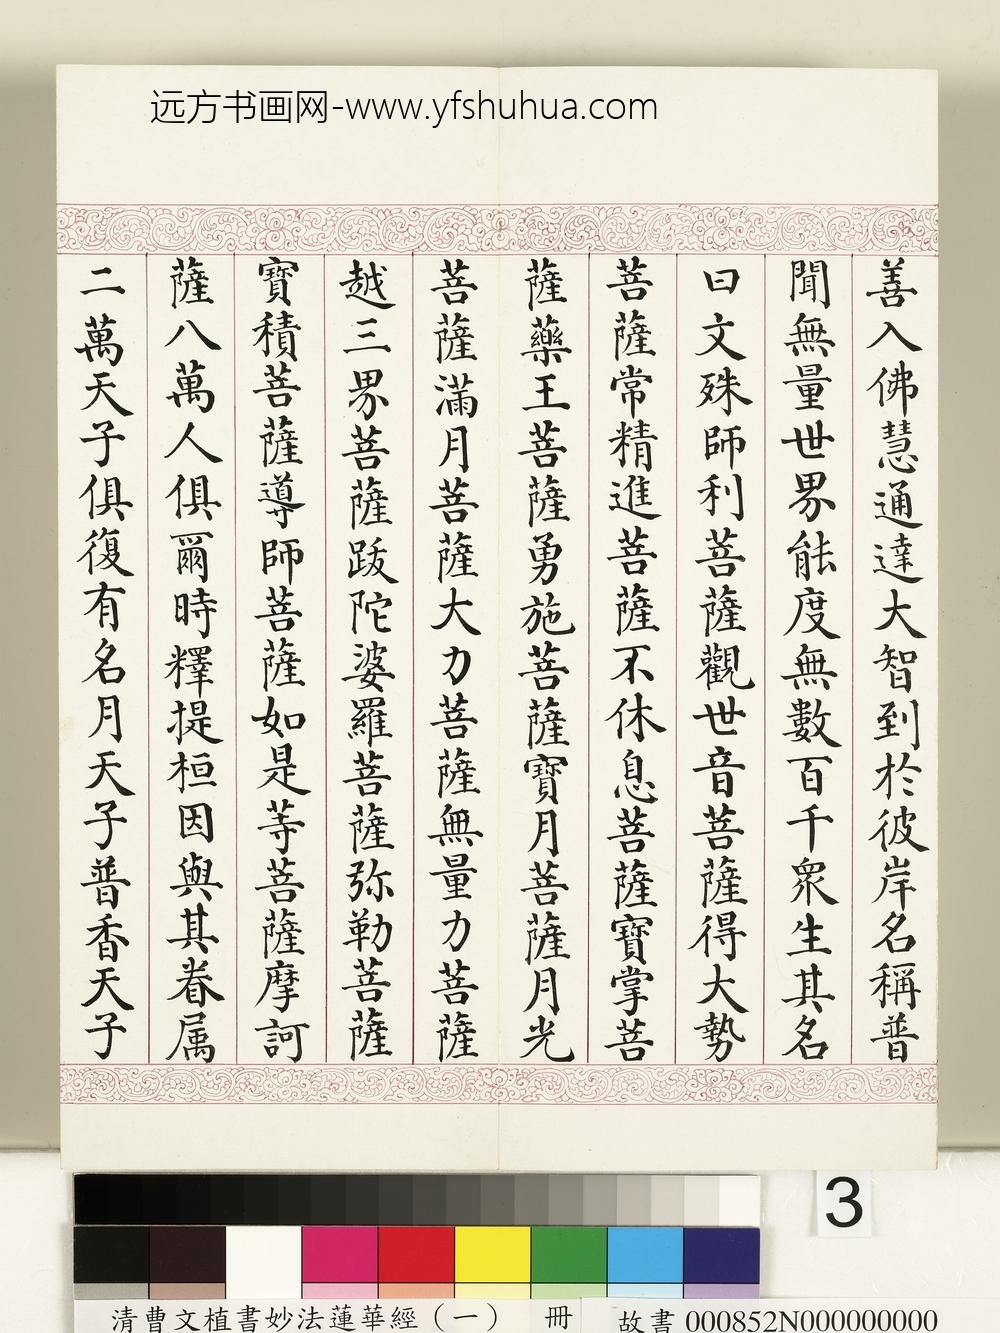 远方书画网-www.yfshuhua.com
善入佛慧通達大智到於彼岸名稱普
聞無量世界能度無數百千衆生其名
曰文殊師利菩薩觀世音菩薩得大勢
菩薩常精進菩薩不休息菩薩寶掌菩
薩藥王菩薩勇施菩薩寶月菩薩月光
菩薩滿月菩薩大力菩薩無量力菩薩
越三界菩薩跋陀婆羅菩薩弥勒菩薩
寶積菩薩導師菩薩如是等菩薩摩訶
薩八萬人俱爾時釋提桓因與其眷属
二萬天子俱復有名月天子普香天子
3
清曹文植書妙法蓮華經（一） 冊
故書 000852N000000000